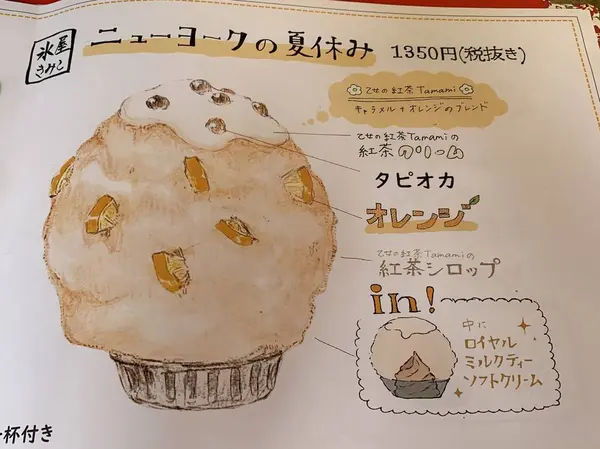 氷屋
きみこ
ニューヨークの夏休み 1350円(税抜き)
乙女の紅茶Tamami
キャラメル+オレンジのブレンド
乙女の紅茶Tamamiの
紅茶
タピオカ
オレンジ
乙女の紅茶Tamamiの
紅茶シロップ
in!
中に
ロイヤル
ミルクティー
ソフトクリーム
杯付き